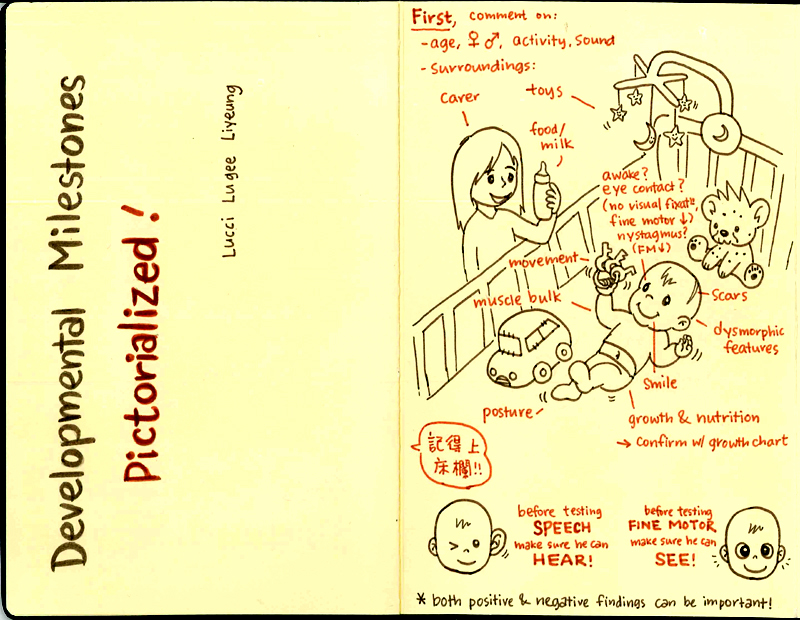 Developmental Milestones
Pictorialized!
Lucci Lugee Liyeung
First, comment on:
- age, ♀♂, activity, sound
- surroundings:
carer
toys
food/
milk
awake?
eye contact?
(no visual fixatⁿ,
fine motor ↓)
nystagmus?
(FM↓)
movement
muscle bulk
scars
dysmorphic
features
smile
posture
growth & nutrition
→ confirm w/ growth chart
記得上
床欄!!
before testing
SPEECH
make sure he can
HEAR!
before testing
FINE MOTOR
make sure he can
SEE!
* both positive & negative findings can be important!